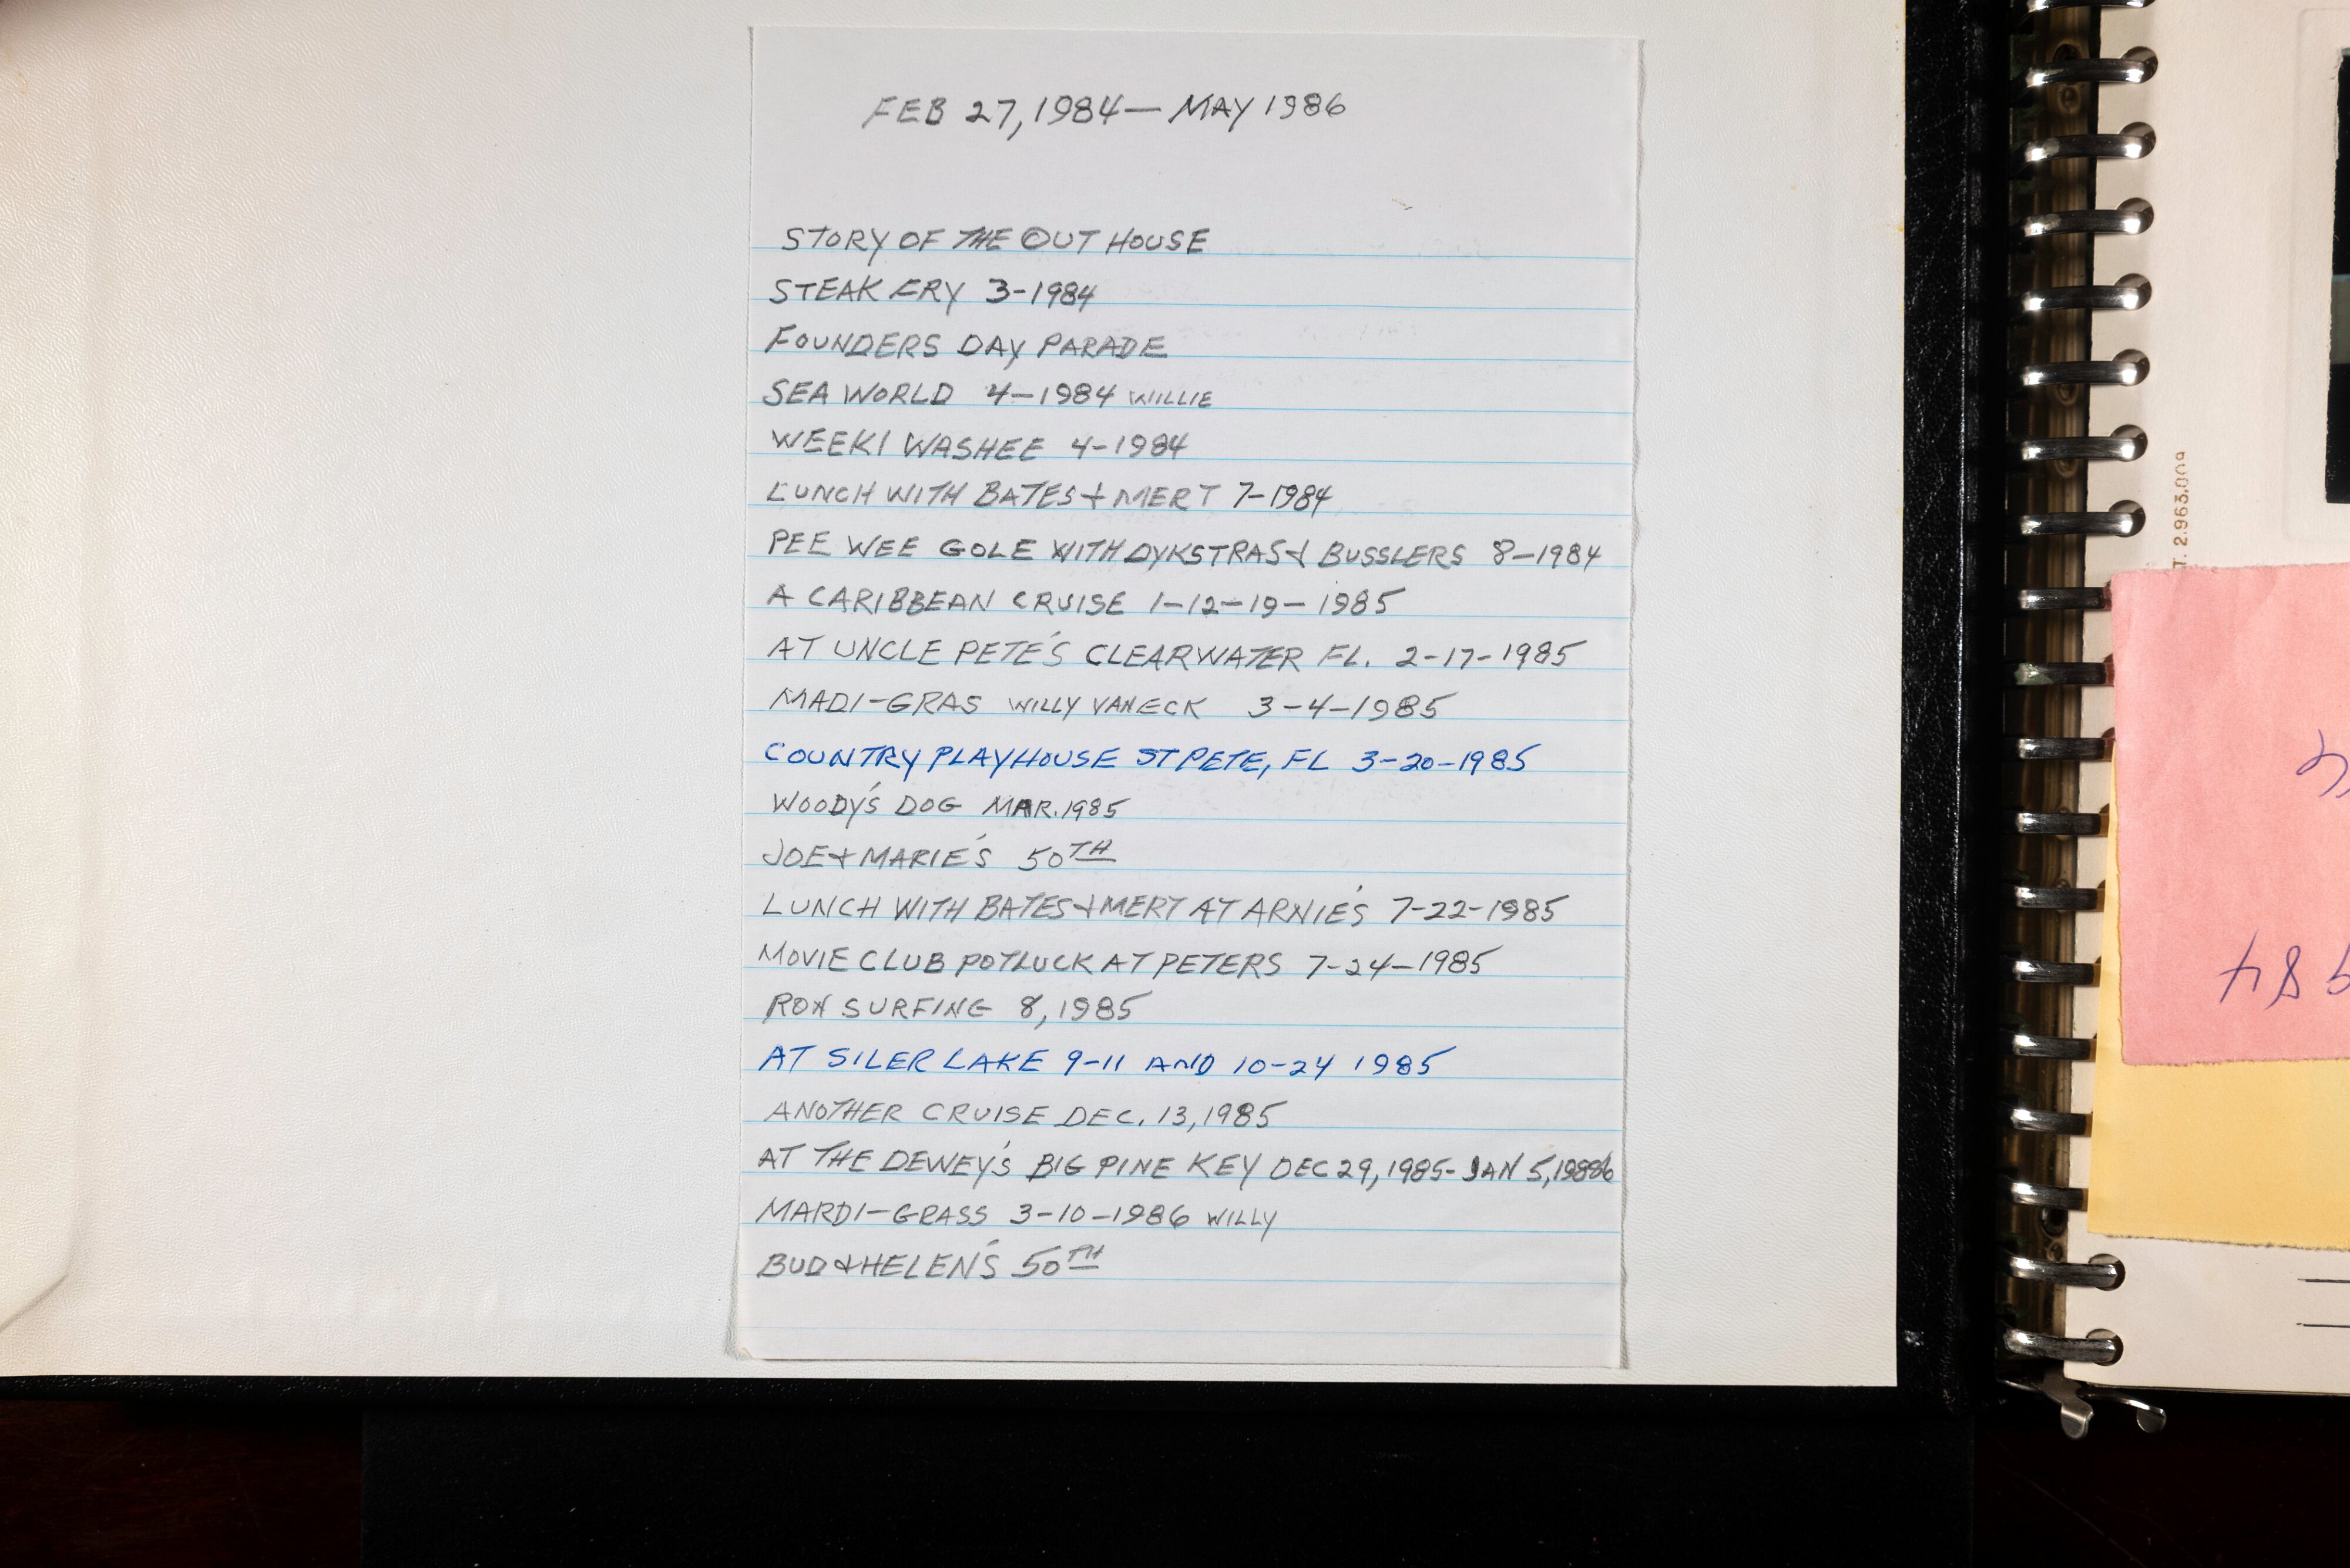 FEB 27, 1984 — MAY 1986
STORY OF THE OUT HOUSE
STEAK FRY 3-1984
FOUNDERS DAY PARADE
SEA WORLD 4-1984 WILLIE
WEEKI WASHEE 4-1984
LUNCH WITH BATES + MERT 7-1984
PEE WEE GOLE WITH DYKSTRAS & BUSSLERS 8-1984
A CARIBBEAN CRUISE 1-12-19-1985
AT UNCLE PETE'S CLEARWATER FL. 2-17-1985
MADI-GRAS WILLY VANECK 3-4-1985
COUNTRY PLAYHOUSE ST PETE, FL 3-20-1985
WOODY'S DOG MAR. 1985
JOE + MARIE'S 50TH
LUNCH WITH BATES + MERT AT ARNIE'S 7-22-1985
MOVIE CLUB POTLUCK AT PETERS 7-24-1985
RON SURFING 8, 1985
AT SILER LAKE 9-11 AND 10-24 1985
ANOTHER CRUISE DEC. 13, 1985
AT THE DEWEY'S BIG PINE KEY DEC 29, 1985 - JAN 5, 1986
MARDI-GRASS 3-10-1986 WILLY
BUD & HELEN'S 50TH
T. 2.963.009